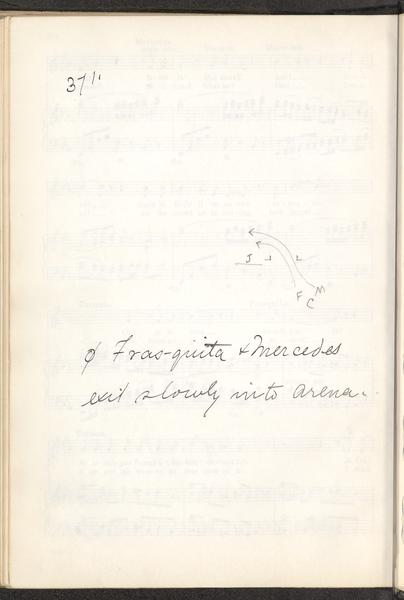 371.
J
F
C
M
φ Fras-quita + Mercedes
exit slowly into arena.